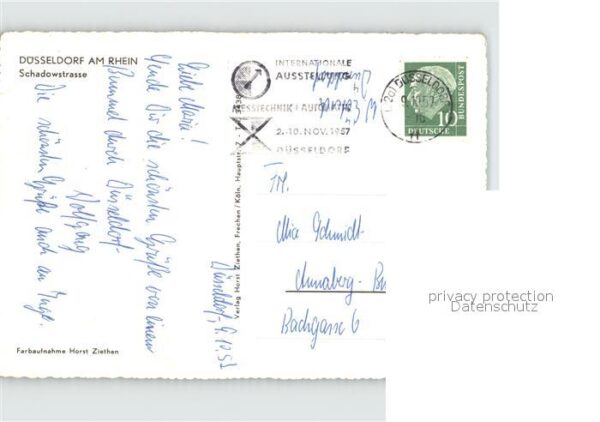 DÜSSELDORF AM RHEIN
Schadowstrasse
Düsseldorf, 9.10.57
Liebe Maria!
Sende Dir die schönsten Grüße von einem
Bummel durch Düsseldorf.
Wolfgang
Die schönsten Grüße auch an Inge.
Farbaufnahme Horst Ziethen
Verlag Horst Ziethen, Frechen/Köln, Hauptstr. 7 - Tel.
INTERNATIONALE
AUSSTELLUNG
MESSTECHNIK + AUTOMATIK
2.-10. NOV. 1957
DÜSSELDORF
DÜSSELDORF
10
DEUTSCHE
BUNDESPOST
Schmidt
Annaberg-
Bachgasse 6
privacy protection
Datenschutz